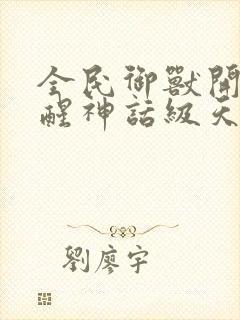 全民御獸開
醒神話級天
劉廖宇